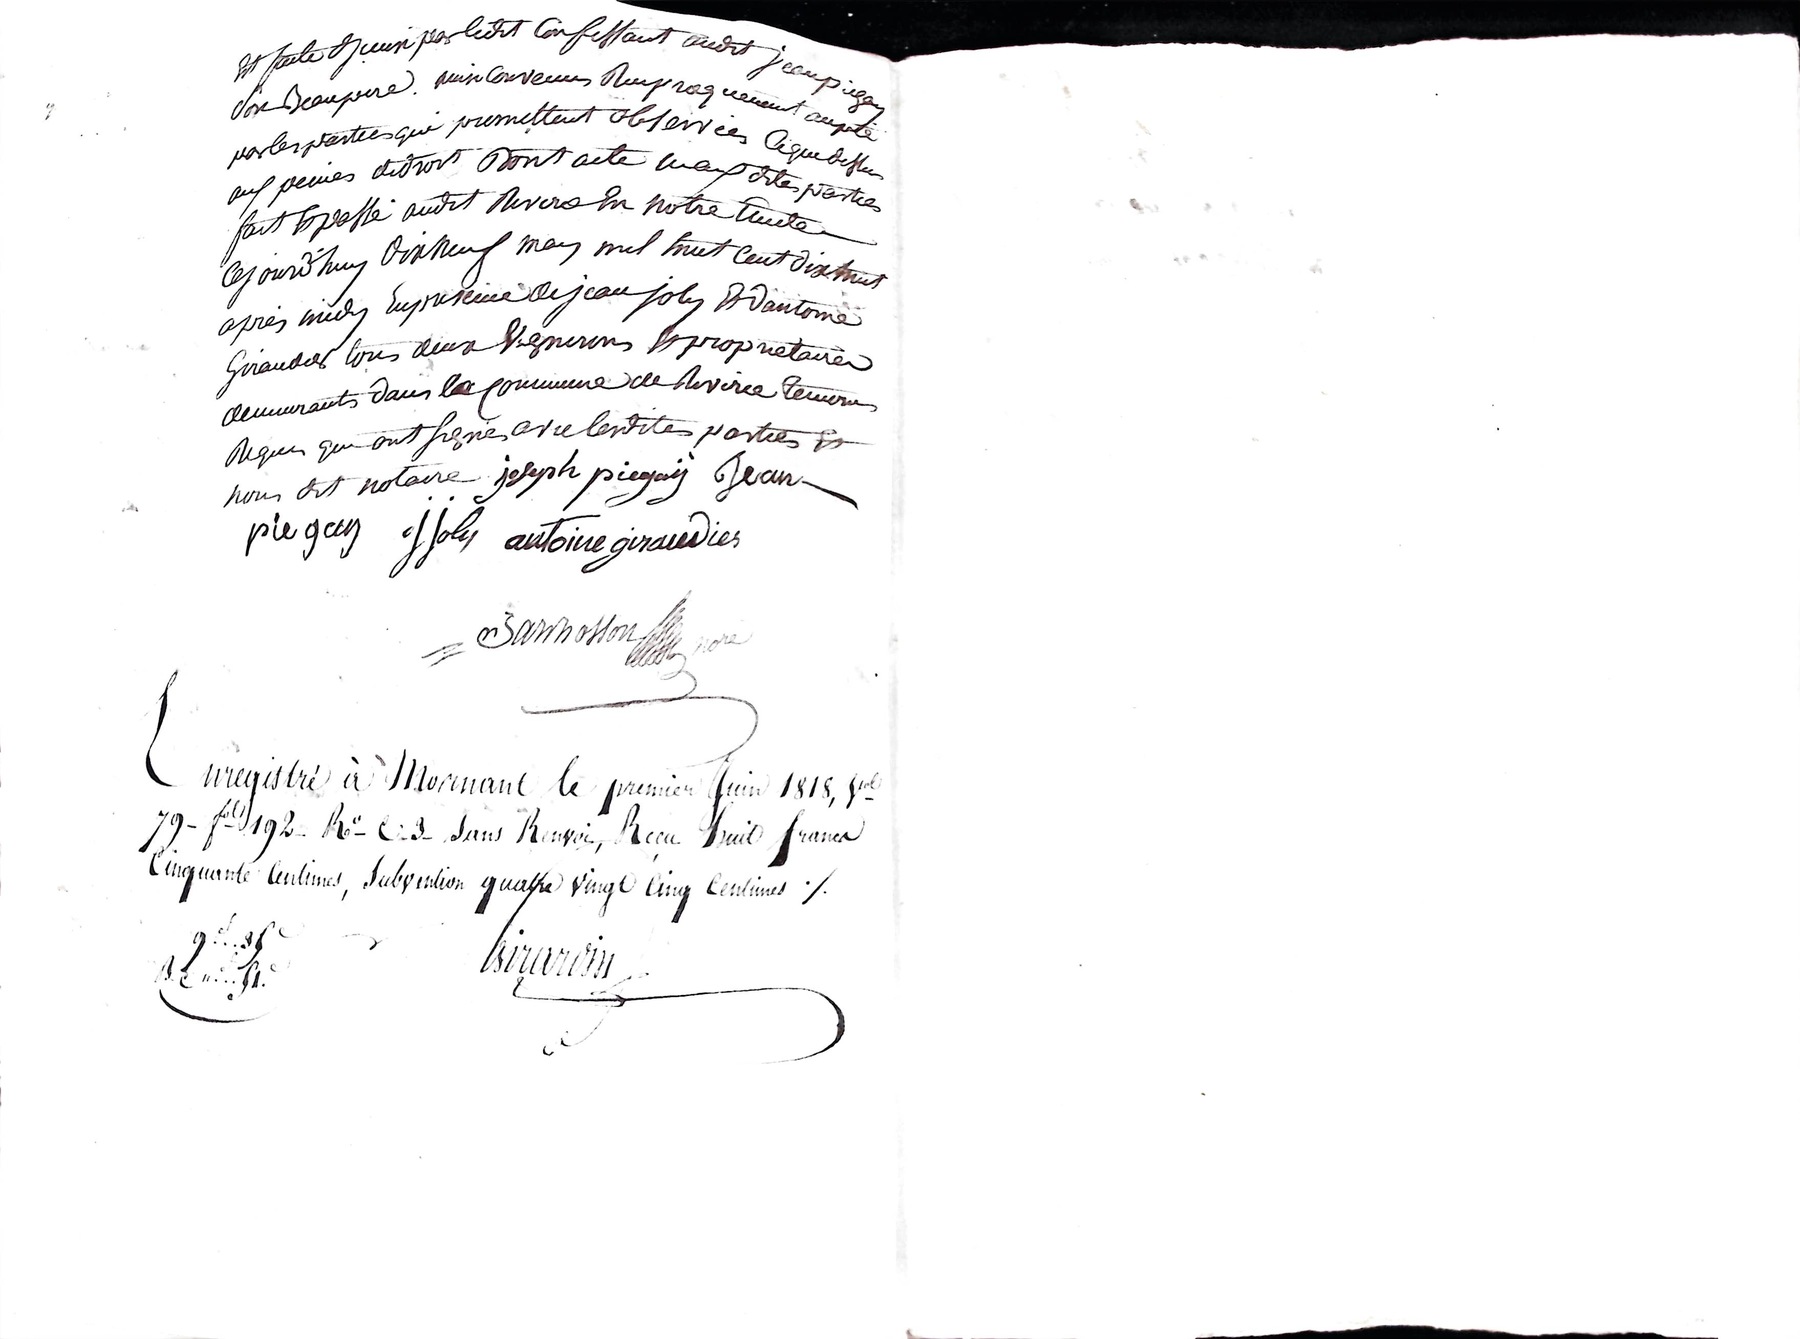 et faite d'yceux par ledit Confessant audit jean piegay
son Beaupere. ainsi Convenus Reciproquement accepté
par les parties qui promettent observer Ceque dessus
aux peines de droit Dont acte auxdites parties
fait Et passé audit Riverie En notre Etude
Cejourd'huy Dixneuf may mil huit Cent dix huit
après midy En presence de jean joly Et d'antoine
Giraudier tous deux Vignerons Et proprietaires
demeurants dans la Commune de Riverie temoins
Requis qui ont signés avec lesdites parties Et
nous dit notaire joseph piegaÿ Jean
piegay j joly antoine giraudier
nore
Enregistré à Mornant le premier Juin 1818, fol
79 - 192 Ro C. 3 Sans Renvoi, Reçu huit francs
Cinquante Centimes, Subvention quatre vingt Cinq Centimes ./.
Girardin